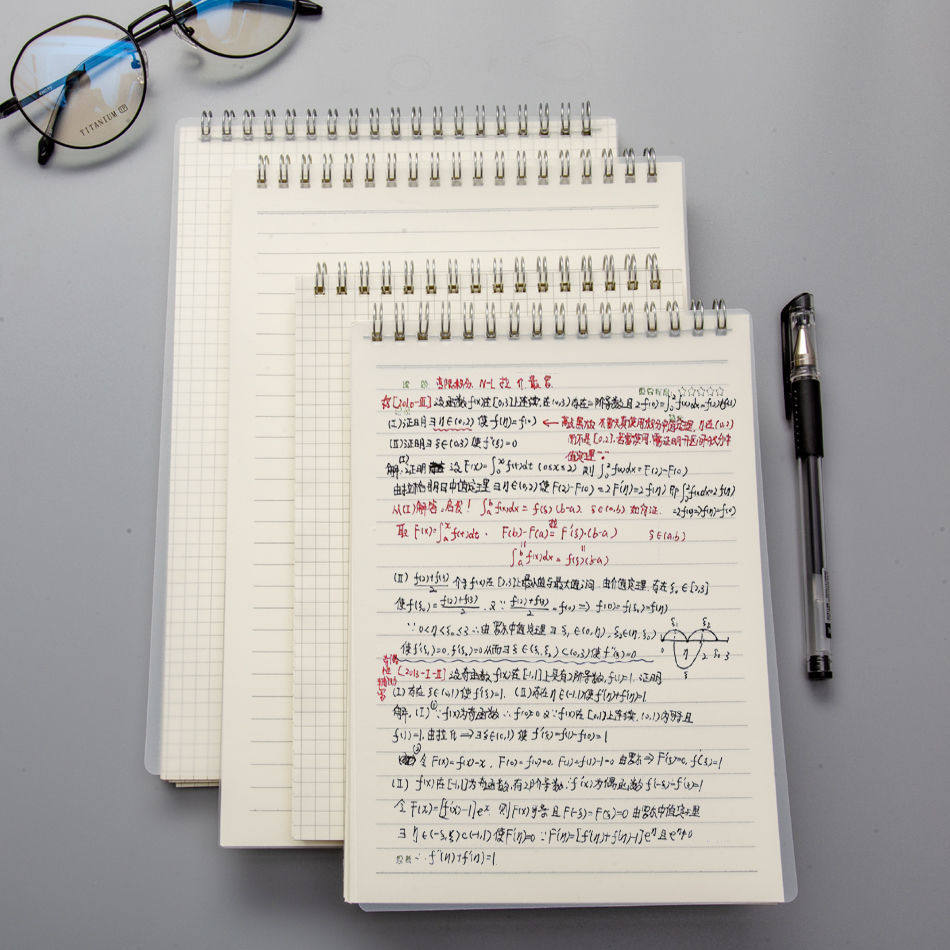 TITANIUM IP
变限积分、N-L 拉 介 最 罗
☆[2010-Ⅲ] 设函数f(x)在[0,3]上连续,在(0,3)存在二阶导数且2f(0)=∫₀²f(x)dx=f(2)+f(3)
(Ⅰ)证明∃η∈(0,2)使f(η)=f(0) ← 不能直接使用积分中值定理,η在(0,2)
(Ⅱ)证明∃ξ∈(0,3)使f''(ξ)=0 而不是[0,2].若需使用,需证明开区间积分中
值定理
解:(Ⅰ)证明 设F(x)=∫₀ˣf(t)dt (0≤x≤2) 则∫₀²f(x)dx=F(2)-F(0)
由拉格朗日中值定理∃η∈(0,2)使F(2)-F(0)=2F'(η)=2f(η) 即∫₀²f(x)dx=2f(η)
从(Ⅰ)解答,启发! ∫ₐᵇf(x)dx=f(ξ)(b-a). ξ∈(a,b)如何证. =2f(0)⇒f(η)=f(0)
取F(x)=∫ₐˣf(t)dt. F(b)-F(a)=拉 F'(ξ)·(b-a) ξ∈(a,b)
∫ₐᵇf(x)dx=f(ξ)(b-a)
(Ⅱ) f(2)+f(3)/2 介于f(x)在[2,3]上最小值与最大值之间,由介值定理,存在ξ₀∈[2,3]
使f(ξ₀)=f(2)+f(3)/2. 又∵f(2)+f(3)/2=f(0)⇒f(0)=f(ξ₀)=f(η)
∵0<η<ξ₀≤3∴由罗尔中值定理∃ξ₁∈(0,η),ξ₂∈(η,ξ₀)
使f'(ξ₁)=0.f'(ξ₂)=0从而∃ξ∈(ξ₁,ξ₂)⊂(0,3)使f''(ξ)=0
ξ₁ ξ₂
0 η 2 ξ₀ 3
ξ
[2013-Ⅰ-Ⅱ] 设奇函数f(x)在[-1,1]上具有2阶导数,f(1)=1.证明
(Ⅰ)存在ξ∈(0,1)使f'(ξ)=1. (Ⅱ)存在η∈(-1,1)使f''(η)+f'(η)=1.
解,(Ⅰ)①∵f(x)为奇函数∴f(0)=0又∵f(x)在[0,1]上连续,(0,1)内可导且
f(1)=1.由拉格⇒∃ξ∈(0,1)使f'(ξ)=f(1)-f(0)=1
②令F(x)=f(x)-x, F(0)=f(0)=0, F(1)=f(1)-1=0 由罗尔⇒F'(ξ)=0, f'(ξ)=1
(Ⅱ) f(x)在[-1,1]为奇函数,有2阶导数,∴f'(x)为偶函数f'(-ξ)=f'(ξ)=1
令F(x)=[f'(x)-1]eˣ. 则F(x)可导且F(-ξ)=F(ξ)=0由罗尔中值定理
∃η∈(-ξ,ξ)⊂(-1,1)使F'(η)=0∵F'(η)=[f''(η)+f'(η)-1]e^η且e^η≠0
∴f''(η)+f'(η)=1